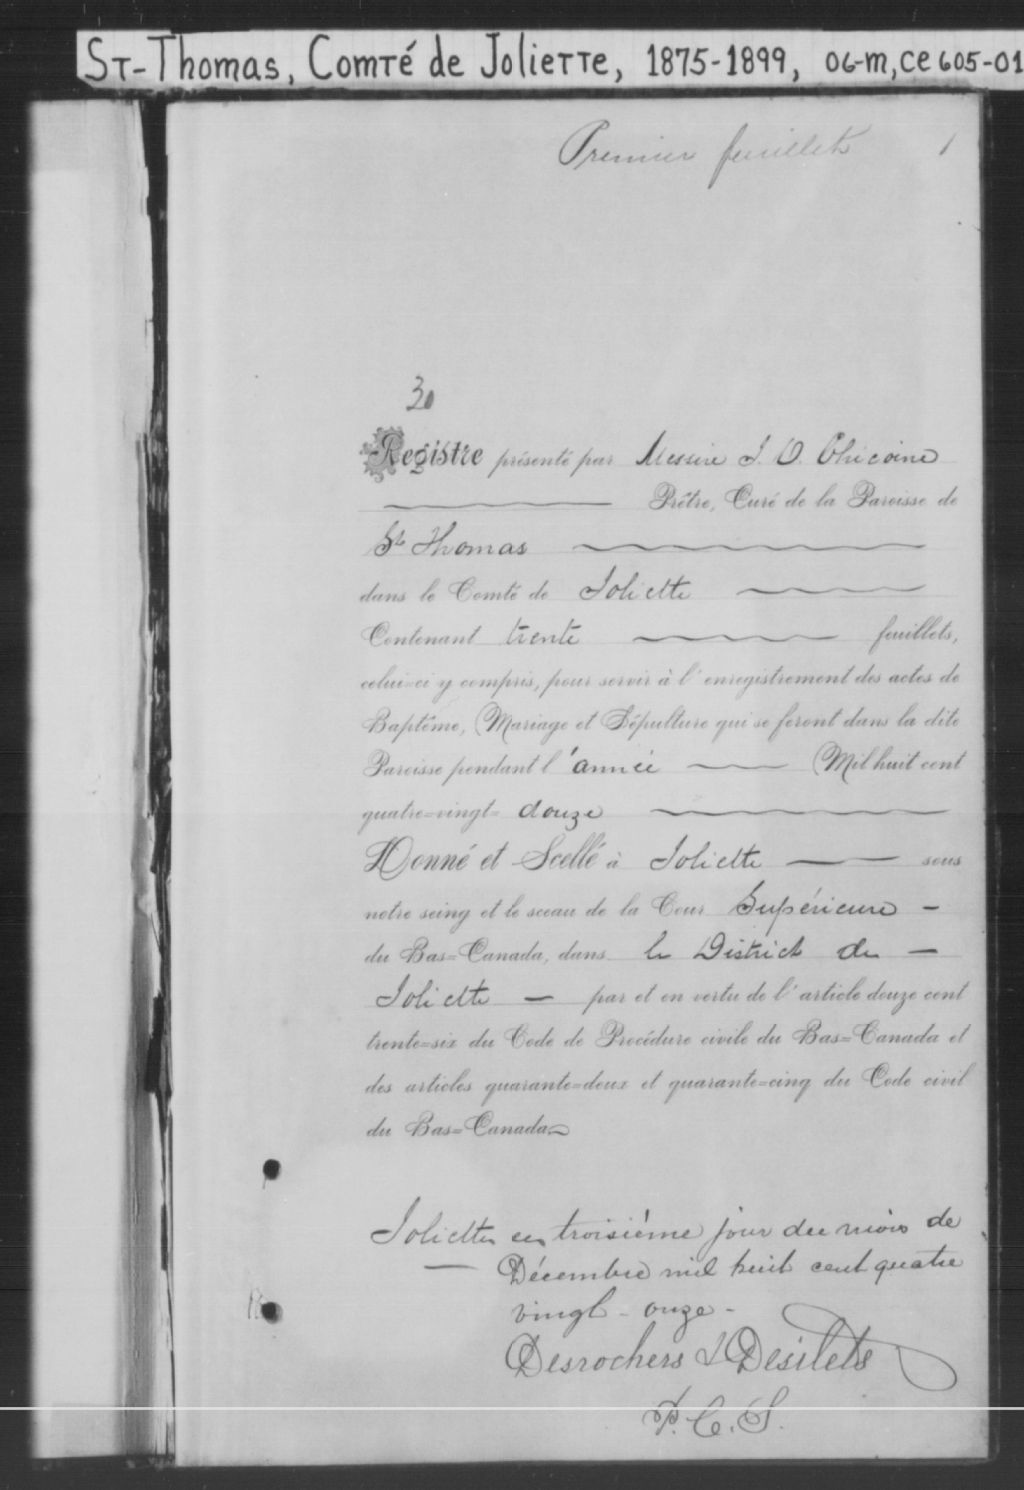 ST-Thomas, Comté de Joliette, 1875-1899, 06-M, CE605-01
Premier feuillet 1
30
Registre présenté par Messire J. O. Chicoine
Prêtre, Curé de la Paroisse de
St Thomas
dans le Comté de Joliette
Contenant trente feuillets,
celui-ci y compris, pour servir à l'enregistrement des actes de
Baptême, Mariage et Sépulture qui se feront dans la dite
Paroisse pendant l'année Mil huit cent
quatre-vingt-douze
Donné et Scellé à Joliette sous
notre seing et le sceau de la Cour Supérieure -
du Bas-Canada, dans le District de -
Joliette - par et en vertu de l'article douze cent
trente-six du Code de Procédure civile du Bas-Canada et
des articles quarante-deux et quarante-cinq du Code civil
du Bas-Canada
Joliette ce troisième jour du mois de
Décembre mil huit cent quatre
vingt-onze-
Desrochers & Desilets
P. C. S.